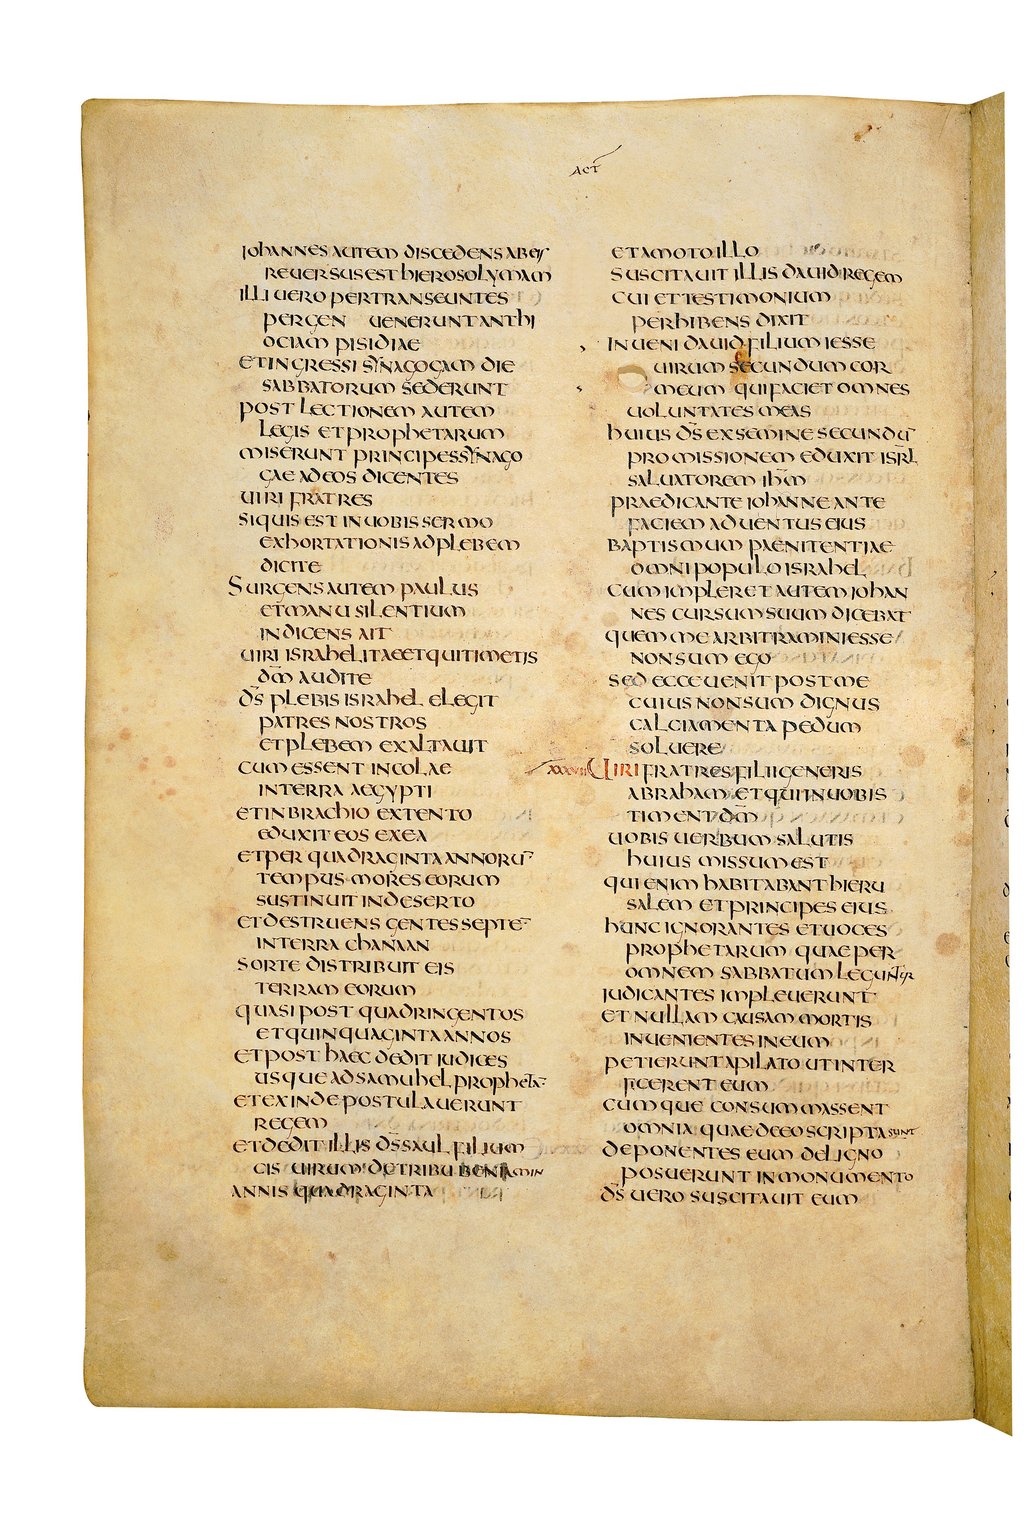 ACT̄
IOHANNES AUTEM DISCEDENS AB EIS
REUERSUS EST HIEROSOLYMAM
ILLI UERO PERTRANSEUNTES
PERGEN UENERUNT ANTHI
OCIAM PISIDIAE
ET INGRESSI SYNAGOGAM DIE
SABBATORUM SEDERUNT
POST LECTIONEM AUTEM
LEGIS ET PROPHETARUM
MISERUNT PRINCIPES SYNAGO
GAE AD EOS DICENTES
UIRI FRATRES
SI QUIS EST IN UOBIS SERMO
EXHORTATIONIS AD PLEBEM
DICITE
SURGENS AUTEM PAULUS
ET MANU SILENTIUM
INDICENS AIT
UIRI ISRAHELITAE ET QUI TIMETIS
D̄M AUDITE
D̄S PLEBIS ISRAHEL ELEGIT
PATRES NOSTROS
ET PLEBEM EXALTAUIT
CUM ESSENT INCOLAE
IN TERRA AEGYPTI
ET IN BRACHIO EXTENTO
EDUXIT EOS EX EA
ET PER QUADRAGINTA ANNORŪ
TEMPUS MORES EORUM
SUSTINUIT IN DESERTO
ET DESTRUENS GENTES SEPTĒ
IN TERRA CHANAAN
SORTE DISTRIBUIT EIS
TERRAM EORUM
QUASI POST QUADRINGENTOS
ET QUINQUAGINTA ANNOS
ET POST HAEC DEDIT IUDICES
USQUE AD SAMUHEL PROPHETĀ
ET EXINDE POSTULAUERUNT
REGEM
ET DEDIT ILLIS D̄S SAUL FILIUM
CIS UIRUM DE TRIBU BENIAMIN
ANNIS QUADRAGINTA
ET AMOTO ILLO
SUSCITAUIT ILLIS DAUID REGEM
CUI ET TESTIMONIUM
PERHIBENS DIXIT
INUENI DAUID FILIUM IESSE
UIRUM SECUNDUM COR
MEUM QUI FACIET OMNES
UOLUNTATES MEAS
HUIUS D̄S EX SEMINE SECUNDŪ
PROMISSIONEM EDUXIT ISR̄L
SALUATOREM IH̄M
PRAEDICANTE IOHANNE ANTE
FACIEM ADUENTUS EIUS
BAPTISMUM PAENITENTIAE
OMNI POPULO ISRAHEL
CUM IMPLERET AUTEM IOHAN
NES CURSUM SUUM DICEBAT
QUEM ME ARBITRAMINI ESSE
NON SUM EGO
SED ECCE UENIT POST ME
CUIUS NON SUM DIGNUS
CALCIAMENTA PEDUM
SOLUERE
XXXVII UIRI FRATRES FILII GENERIS
ABRAHAM ET QUI IN UOBIS
TIMENT D̄M
UOBIS UERBUM SALUTIS
HUIUS MISSUM EST
QUI ENIM HABITABANT HIERU
SALEM ET PRINCIPES EIUS
HUNC IGNORANTES ET UOCES
PROPHETARUM QUAE PER
OMNEM SABBATUM LEGUNTUR
IUDICANTES IMPLEUERUNT
ET NULLAM CAUSAM MORTIS
INUENIENTES IN EUM
PETIERUNT A PILATO UT INTER
FICERENT EUM
CUMQUE CONSUMMASSENT
OMNIA QUAE DE EO SCRIPTA SUNT
DEPONENTES EUM DE LIGNO
POSUERUNT IN MONUMENTO
D̄S UERO SUSCITAUIT EUM